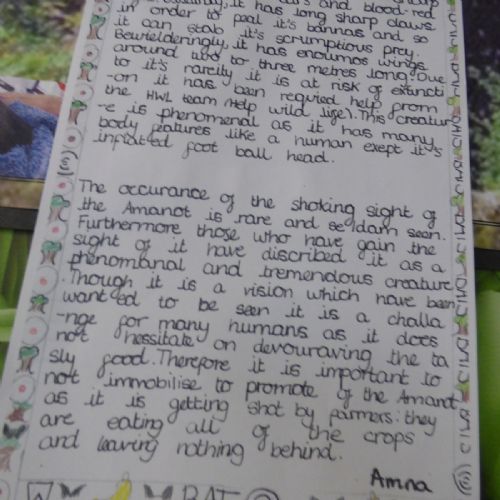 it has long sharp claws
in order to peal it's bannas and so
it can stab it's scrumptious prey.
Bewielderingly, it has enoumos wings
around two to three metres long. Due
to it's rareity it is at risk of extincti
-on it has been reqvired help from
the HWL team (Help wild life). This creatur
-e is phenomenal as it has many
body features like a human exept it's
inflatted foot ball head.
The occurance of the shoking sight of
the Amanot is rare and seldam seen.
Furthermore those who have gain the
sight of it have discribed it as a
phenombnal and tremendous creature
. Though it is a vision which have been
want ed to be seen it is a challa
-nge for many humans as it does
not hessitate on devouraving the ta
sty food. Therefore it is important to
not immobilise to promote of the Amanot
as it is getting shot by farmers: they
are eating all of the crops
and leaving nothing behind.
Amna